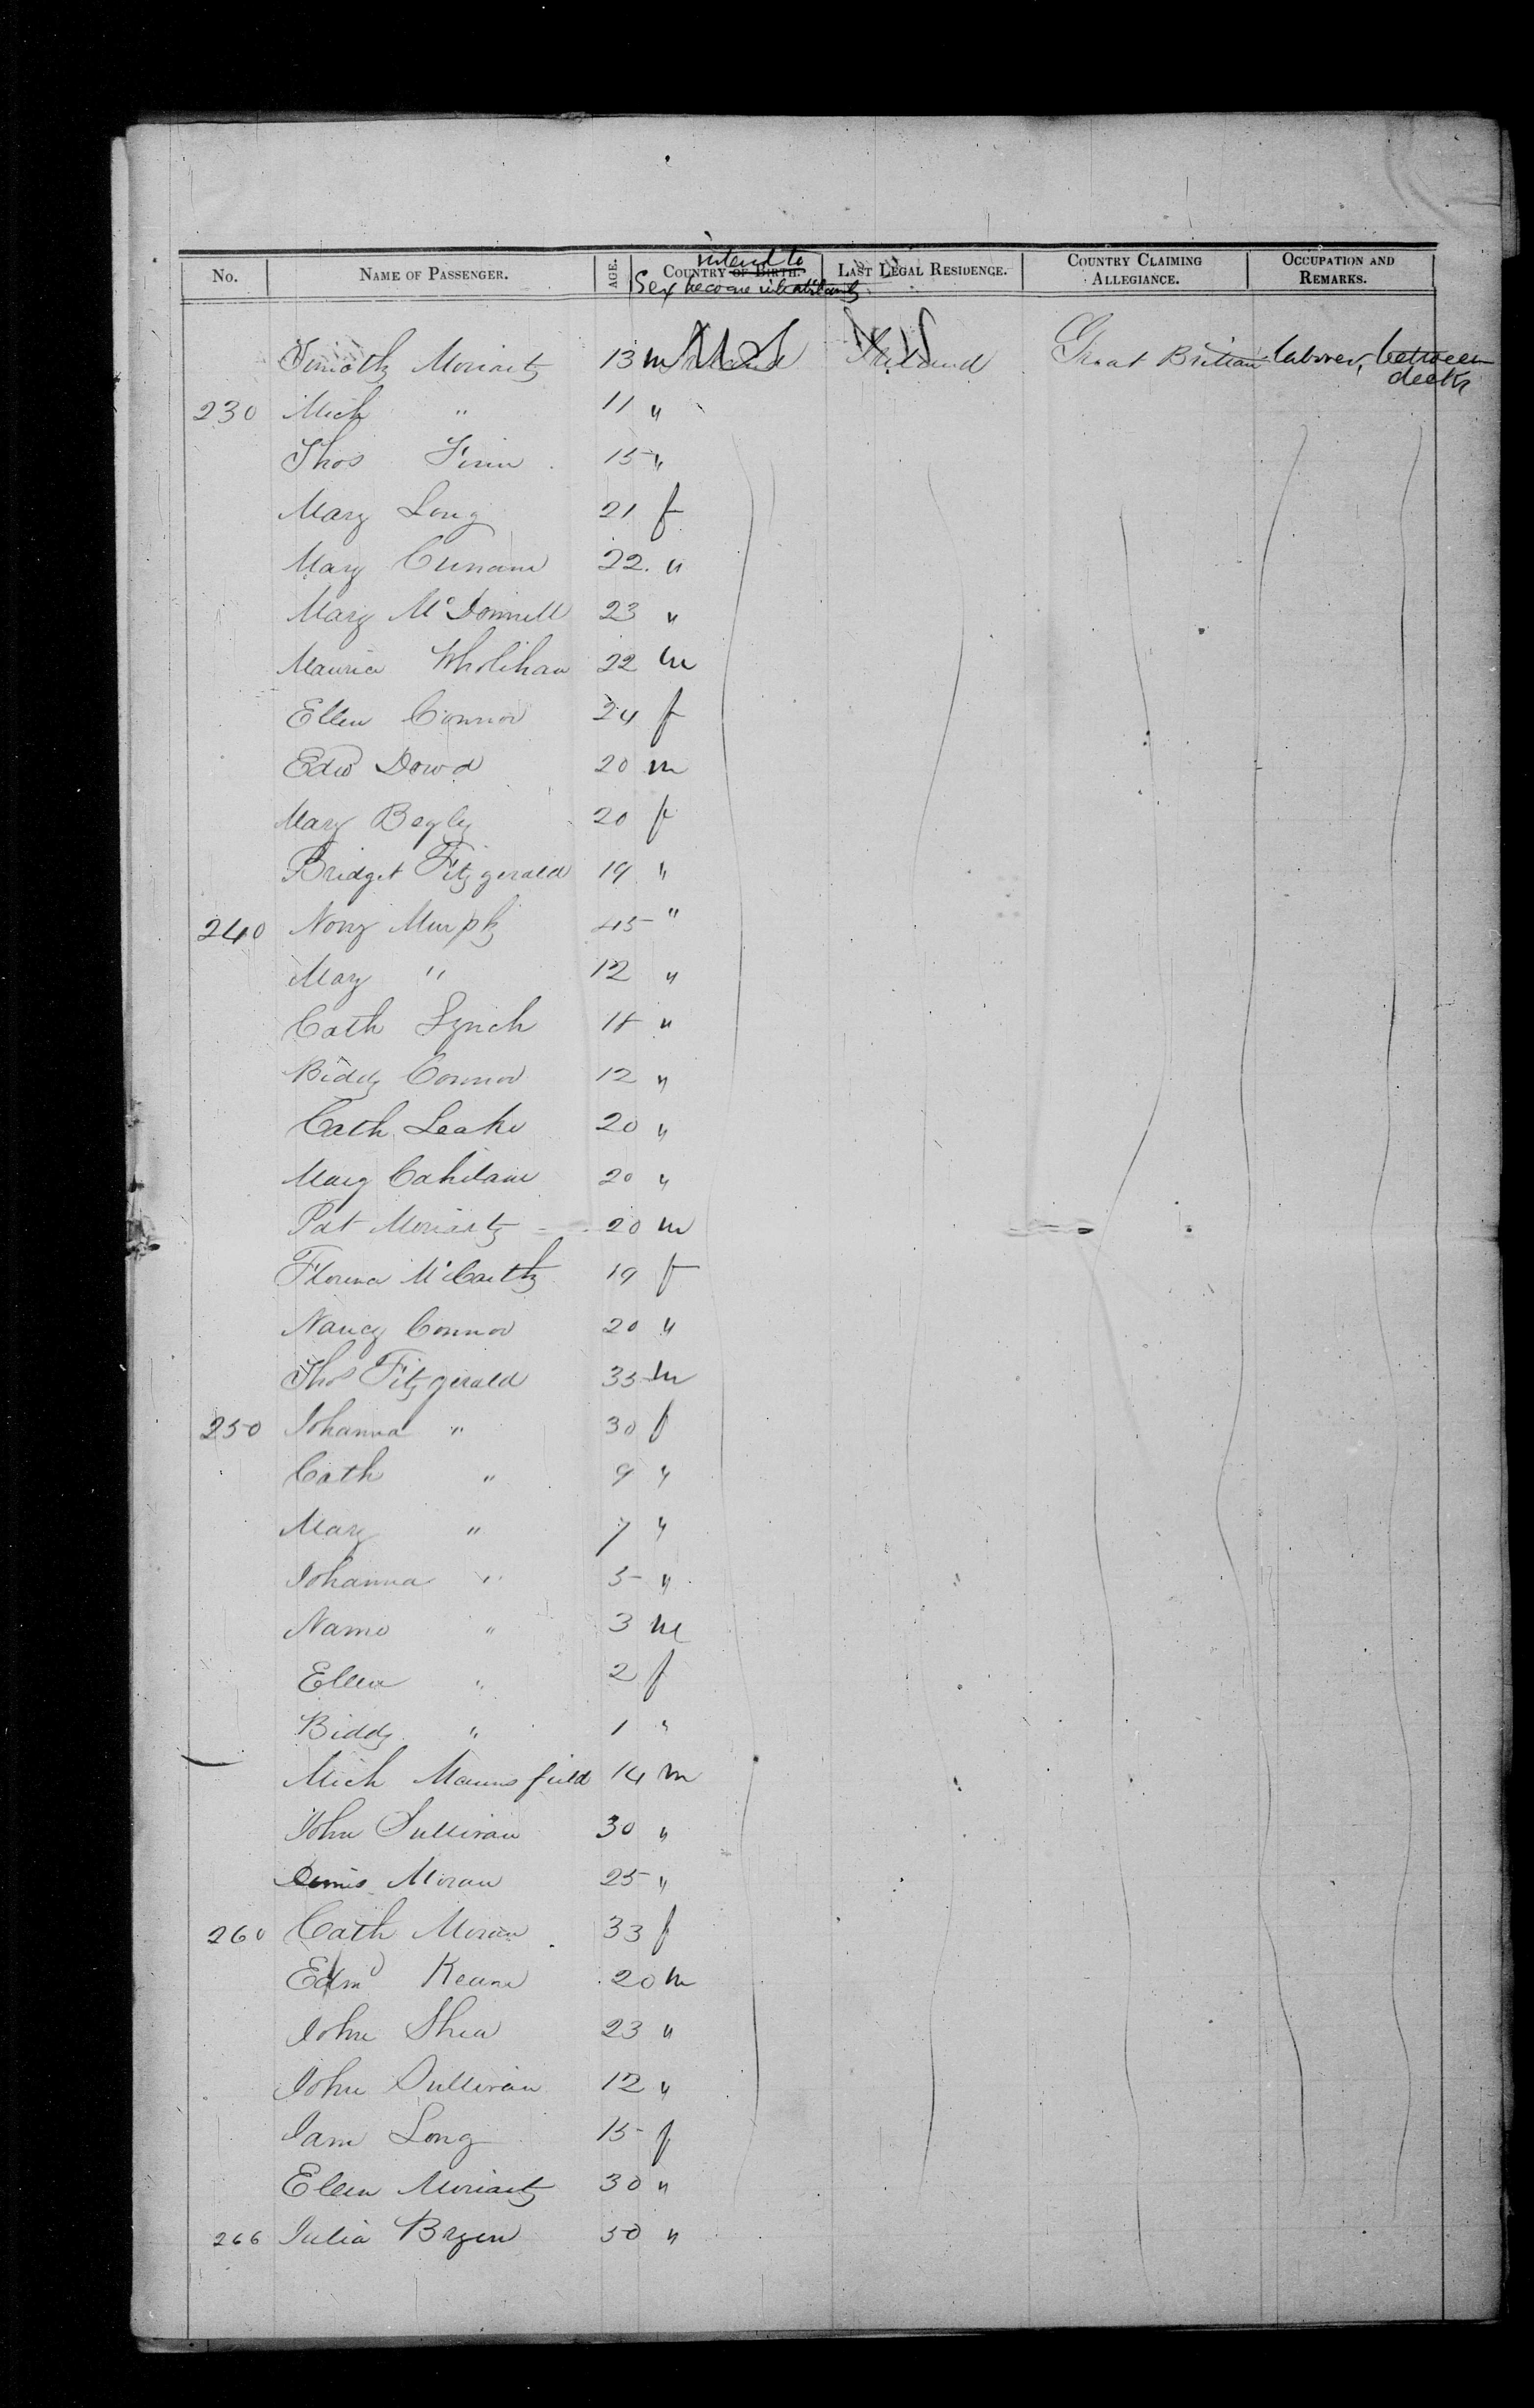 No. NAME OF PASSENGER. AGE. Sex COUNTRY OF BIRTH. intend to become inhabitants LAST LEGAL RESIDENCE. COUNTRY CLAIMING ALLEGIANCE. OCCUPATION AND REMARKS.
Timothy Moriarty 13 m Ireland Ireland Great Britain laborer, between decks
230 Mich " 11 "
Thos Finn 15 "
Mary Long 21 f
Mary Cunane 22 "
Mary McDonnell 23 "
Maurice Wholihan 22 m
Ellen Connor 24 f
Edwd Dowd 20 m
Mary Begly 20 f
Bridget Fitzgerald 19 "
240 Nory Murphy 45 "
Mary " 12 "
Cath Lynch 18 "
Biddy Connor 12 "
Cath Leahe 20 "
Mary Cahilane 20 "
Pat Moriarty 20 m
Florence McCarthy 19 f
Nancy Connor 20 "
Thos Fitzgerald 35 m
250 Johanna " 30 f
Cath " 9 "
Mary " 7 "
Johanna " 5 "
" 3 m
Ellen " 2 f
Biddy " 1 "
Mich Maunsfield 14 m
John Sullivan 30 "
Dennis Moran 25 "
260 Cath Moran 33 f
Edmd Keane 20 m
John Shea 23 "
John Sullivan 12 "
Jane Long 15 f
Ellen Moriarty 30 "
266 Julia Bryen 50 "